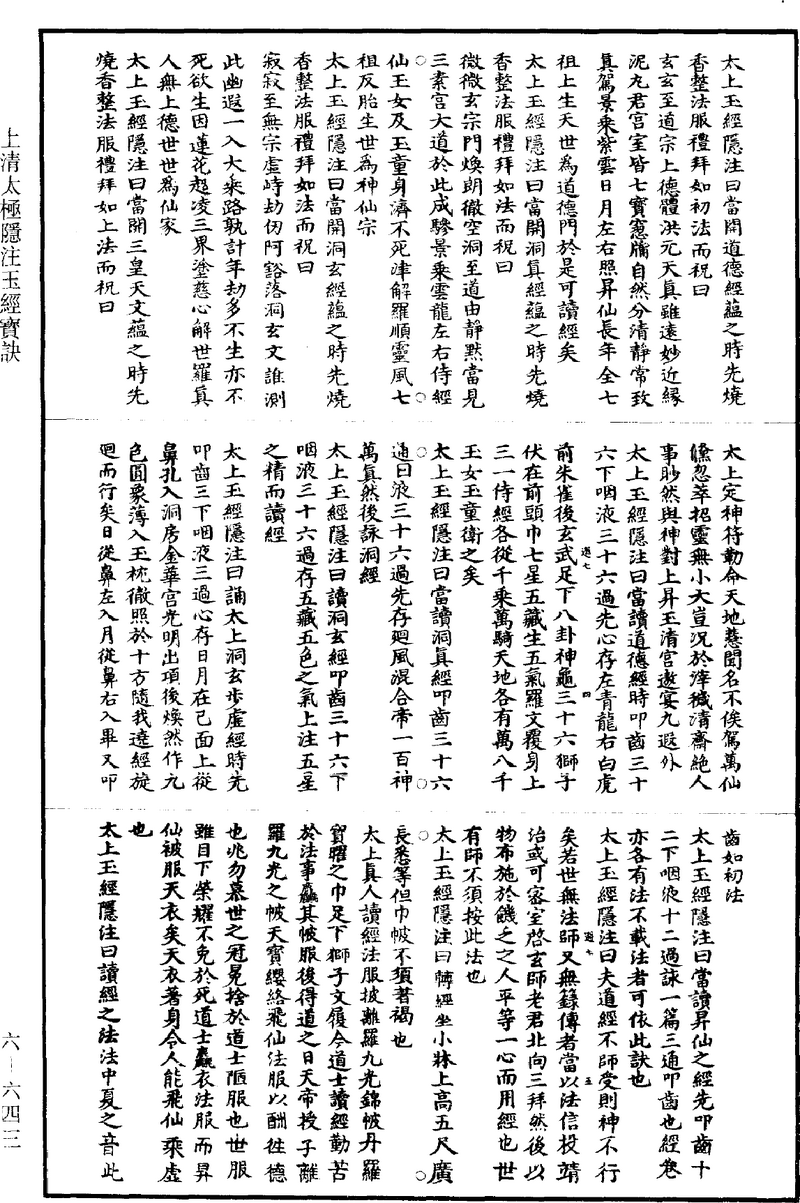 上清太極隱注玉經寶訣
太上玉經隱注曰當開道德經蘊之時先燒
香整法服禮拜如初法而祝曰
玄玄至道宗上德體洪元天真雖遠妙近緣
泥丸君宮室皆七寶窻牖自然分清靜常致
真駕景乘紫雲日月左右照昇仙長年全七
祖上生天世為道德門於是可讀經矣
太上玉經隱注曰當開洞真經蘊之時先燒
香整法服禮拜如法而祝曰
微微玄宗門煥朗徹空洞至道由靜默當見
三素宮大道於此成驂景乘雲龍左右侍經
仙玉女及玉童身濟不死津解羅順靈風七
祖反胎生世為神仙宗
太上玉經隱注曰當開洞玄經蘊之時先燒
香整法服禮拜如法而祝曰
寂寂至無宗虛峙劫仞阿豁落洞玄文誰測
此幽遐一入大乘路孰計年劫多不生亦不
死欲生因蓮花超凌三界塗慈心解世羅真
人無上德世世為仙家
太上玉經隱注曰當開三皇天文蘊之時先
燒香整法服禮拜如上法而祝曰
太上定神符勅命天地慧聞名不俟駕萬仙
儵忽萃招靈無小大豈況於滓穢清齋絕人
事眇然與神對上昇玉清宮遨宴九遐外
太上玉經隱注曰當讀道德經時叩齒三十
六下咽液三十六過先心存左青龍右白虎
前朱雀後玄武足下八卦神龜三十六獅子
伏在前頭巾七星五藏生五氣羅文覆身上
三一侍經各從千乘萬騎天地各有萬八千
玉女玉童衛之矣
太上玉經隱注曰當讀洞真經叩齒三十六
通曰液三十六過先存廻風混合帝一百神
萬真然後詠洞經
太上玉經隱注曰讀洞玄經叩齒三十六下
咽液三十六過存五藏五色之氣上注五星
之精而讀經
太上玉經隱注曰誦太上洞玄步虛經時先
叩齒三下咽液三過心存日月在己面上從
鼻孔入洞房金華宮光明出項後煥然作九
色圓象薄入玉枕徹照於十方隨我遶經旋
迴而行矣日從鼻左入月從鼻右入畢又叩
齒如初法
太上玉經隱注曰當讀昇仙之經先叩齒十
二下咽液十二過詠一篇三通叩齒也經卷
亦各有法不載法者可依此訣也
太上玉經隱注曰夫道經不師受則神不行
矣若世無法師又無錄傳者當以法信投靖
治或可密室啓玄師老君北向三拜然後以
物布施於饑乏之人平等一心而用經也世
有師不須按此法也
太上玉經隱注曰轉經坐小牀上高五尺廣
長悉等但巾帔不須著褐也
太上真人讀經法服披離羅九光錦帔丹羅
寶曜之巾足下獅子文履今道士讀經勤苦
於法事麤其帔服後得道之日天帝授子離
羅九光之帔天寶纓絡飛仙法服以酬往德
也兆勿慕世之冠冕捨於道士陋服也世服
雖目下榮耀不免於死道士麤衣法服而昇
仙被服天衣矣天衣著身令人能飛仙乘虛
也
太上玉經隱注曰讀經之法法中夏之音此
六-六四三